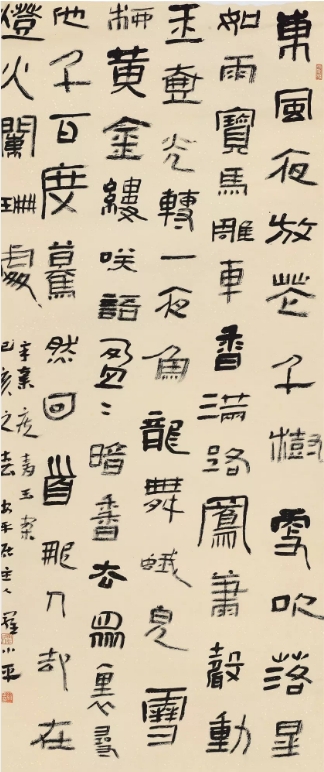 東風夜放花千樹更吹落星
如雨寶馬雕車香滿路鳳簫聲動
玉壺光轉一夜魚龍舞蛾兒雪
柳黃金縷咲語盈〻暗香去眾里尋
他千百度驀然回首那人却在
燈火闌珊處
辛棄疾青玉案
己亥之 主人羅小平